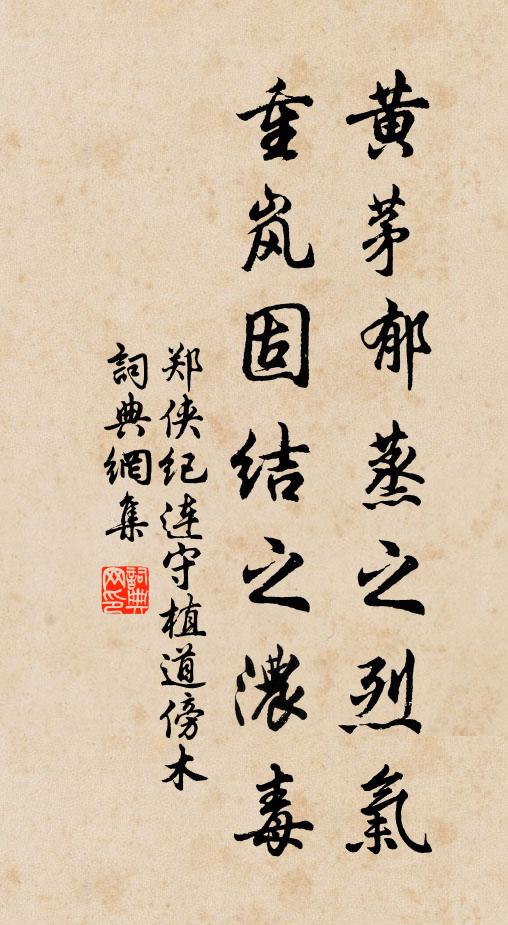 黄茅郁蒸之烈氣
重岚固结之濃毒
郑侠纪连守植道傍木
詞典網集
詞典网印